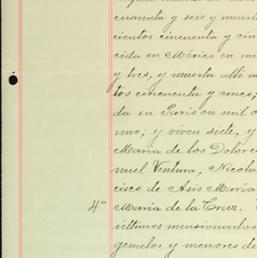 cuarenta y seis y muerto
cientos cincuenta y cin
cida en México en mi
y tres, y muerta allí m
tos cincuenta y cinco;
da en París en mil o
uno; y viven siete, y
María de los Dolores
nuel Ventura, Nicola
cisco de Asis María
4ª María de la Cruz.
últimos mencionados
gemelos y menores de